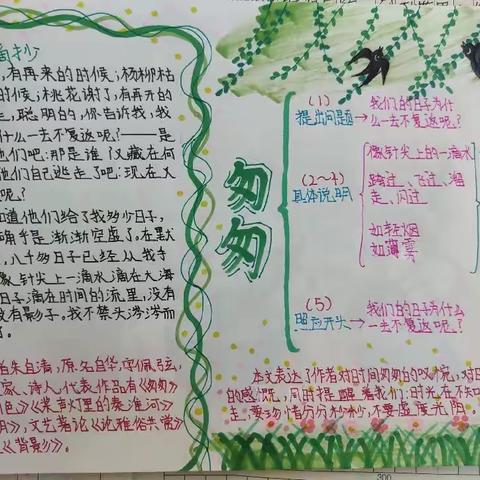 摘抄
,有再来的时候;杨柳枯
时候;桃花谢了,有再开的
,聪明的,你告诉我,我
什么一去不复返呢?——是
他们吧:那是谁?又藏在何
他们自己逃走了吧:现在又
呢?
知道他们给了我多少日子,
确乎是渐渐空虚了。在默
,八千多日子已经从我手
像针尖上一滴水滴在大海
日子滴在时间的流里,没有
没有影子。我不禁头涔涔而
了。
朱自清,原名自华,字佩弦,
家、诗人,代表作品有《匆匆》
色》《桨声灯里的秦淮河》
》,文艺著论《论雅俗共赏》
《背影》。
匆匆
(1)
提出问题→我们的日子为什
么一去不复返呢?
(2~4)
具体说明
像针尖上的一滴水
跨过、飞过、溜
走、闪过
如轻烟
如薄雾
(5)
照应开头→我们的日子为什么
一去不复返呢?
本文表达了作者对时间匆匆的叹惋,对
的感慨,同时提醒着我们:时光在不
走,要珍惜分分秒秒,不要虚度光阴。
300